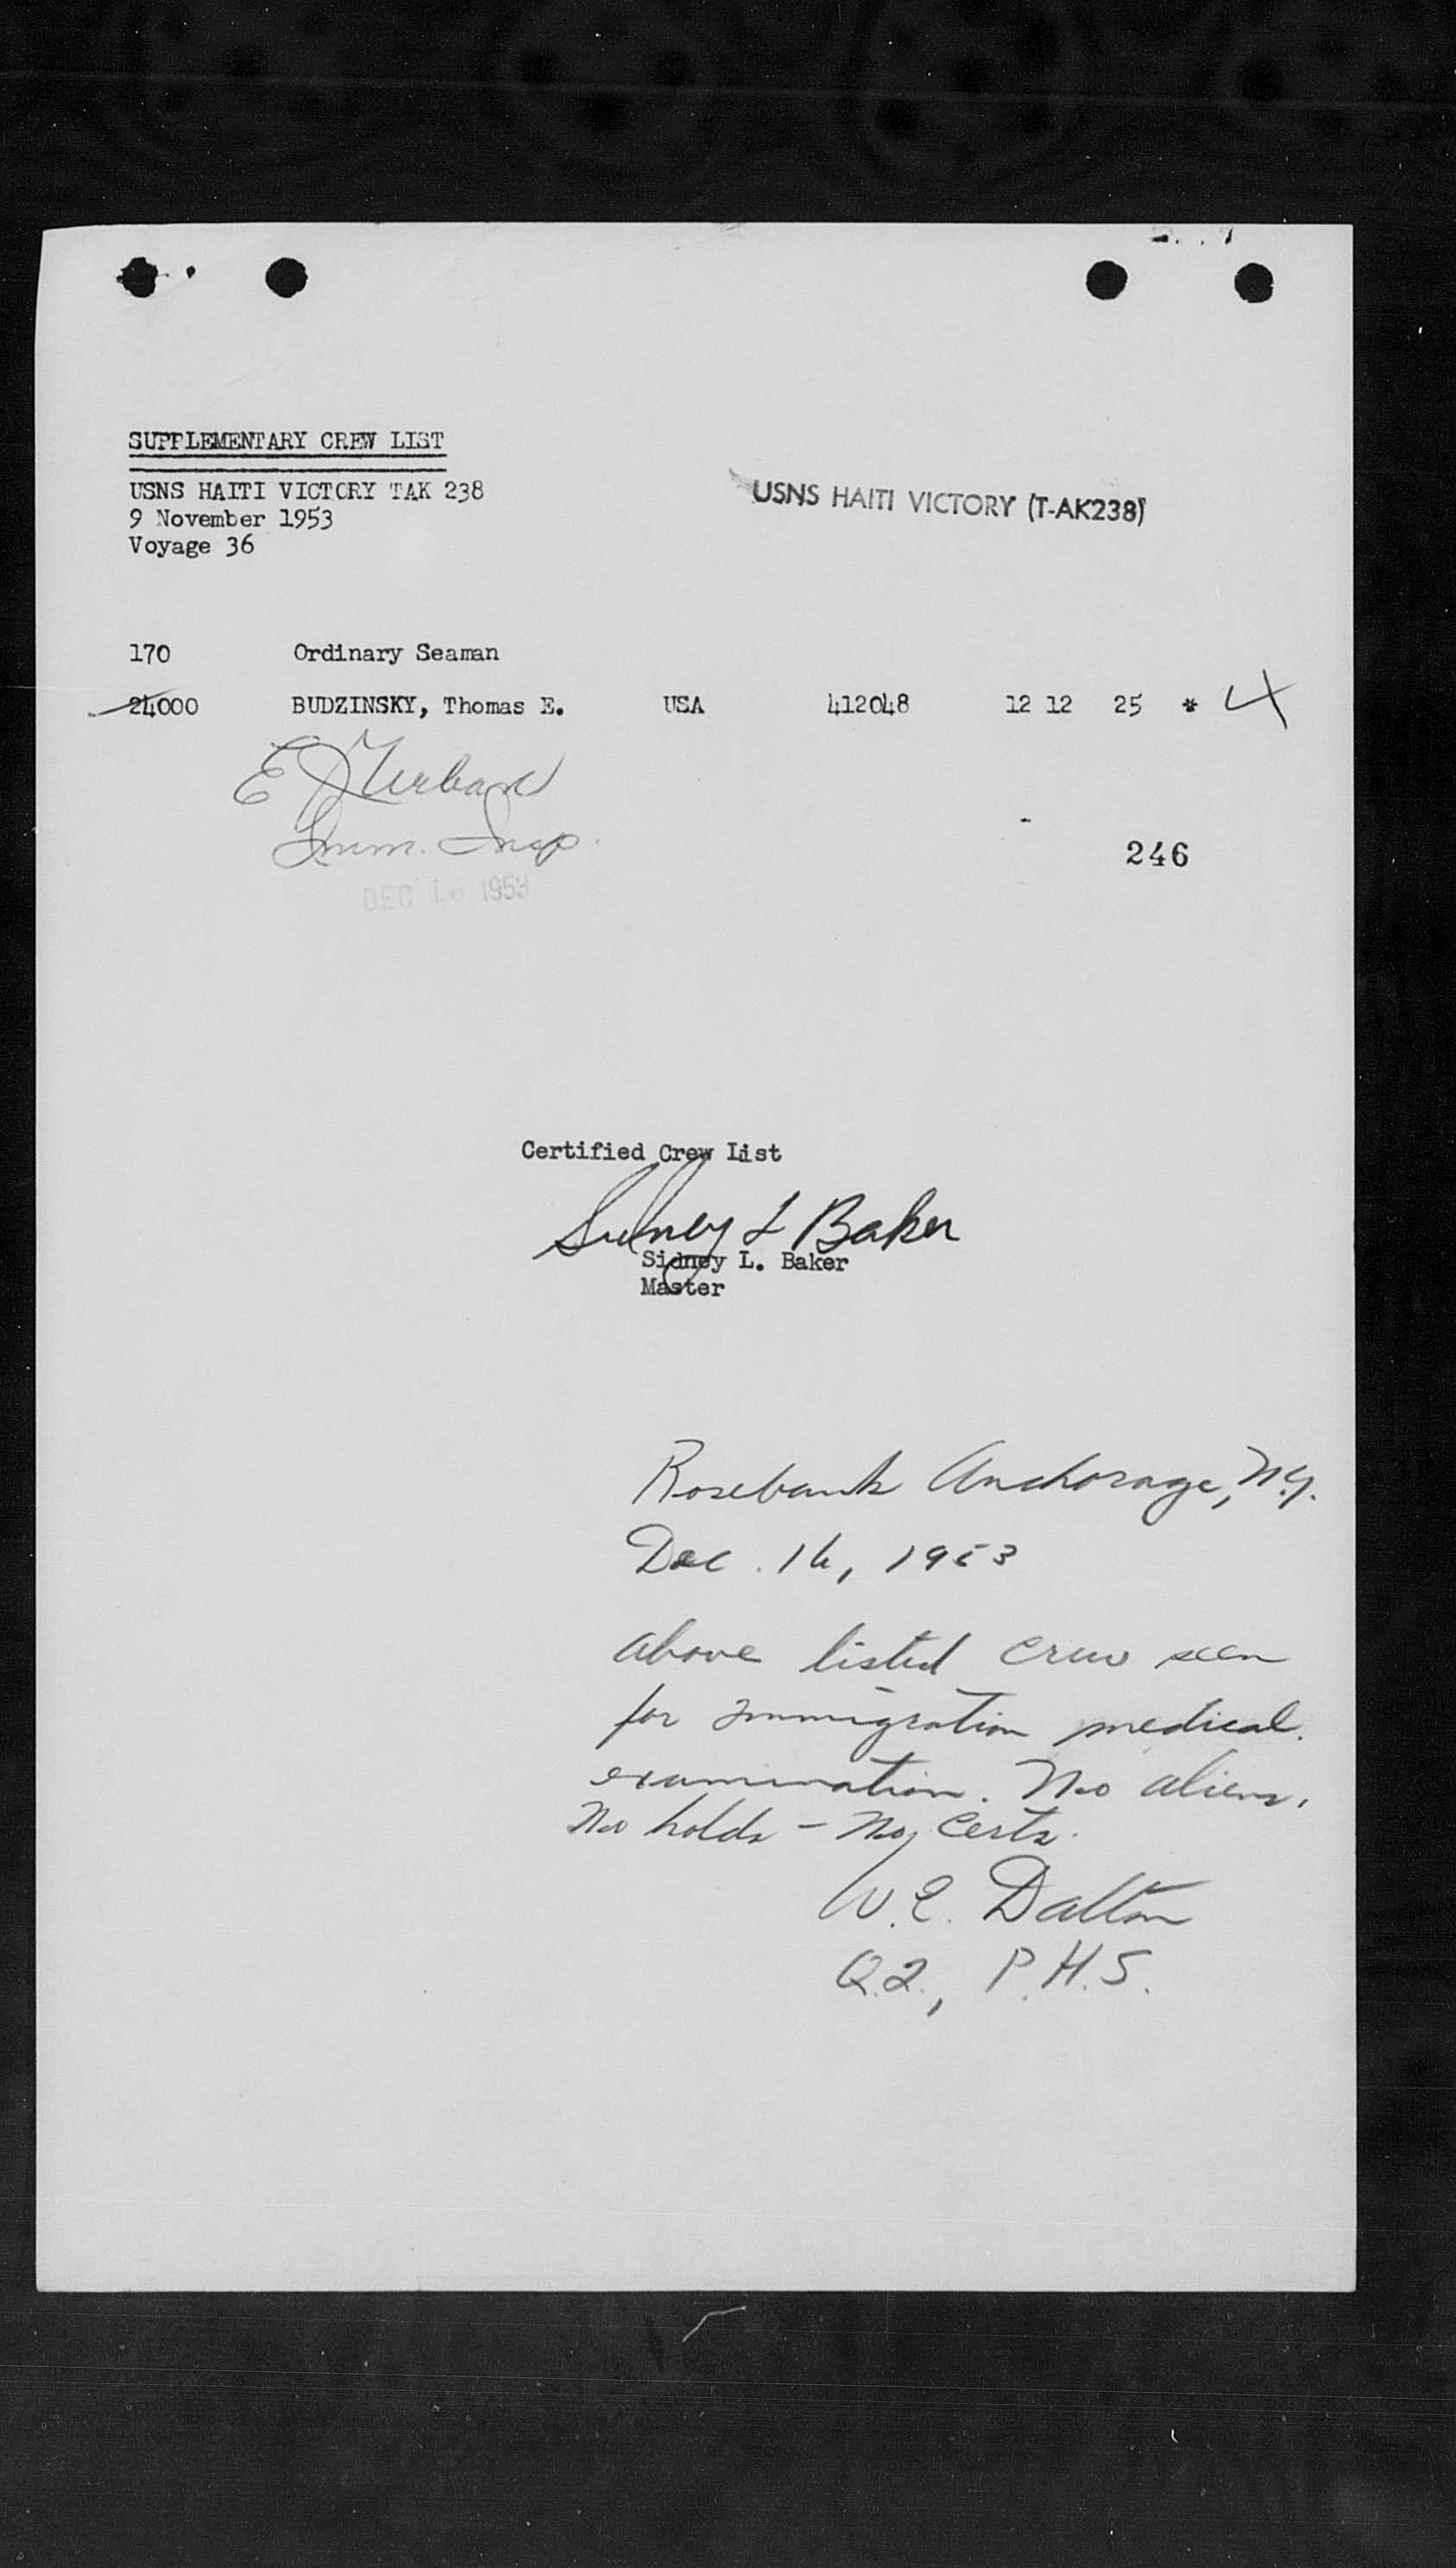 SUPPLEMENTARY CREW LIST
USNS HAITI VICTORY TAK 238
USNS HAITI VICTORY (T-AK238)
9 November 1953
Voyage 36
170 Ordinary Seaman
24000 BUDZINSKY, Thomas E. USA 412048 12 12 25 * 4
E
Imm. Insp.
246
DEC 16 1953
Certified Crew List
Sidney L Baker
Sidney L. Baker
Master
Rosebank Anchorage, N.Y.
Dec. 16, 1953
above listed crew seen
for immigration medical
examination. No aliens.
No holds - No certs.
W.E. Dalton
Q.2., P.H.S.